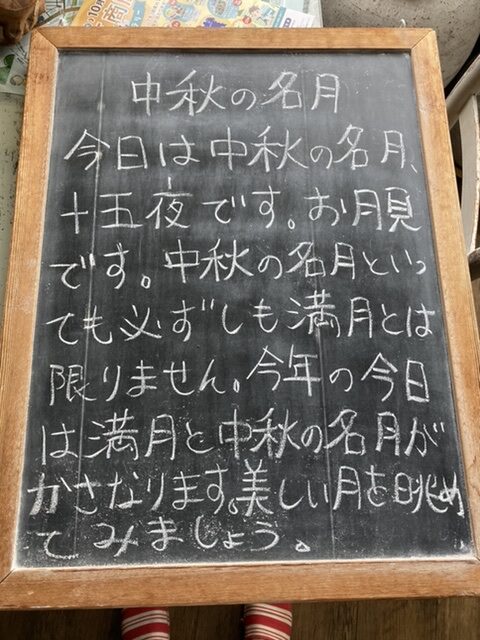 中秋の名月
今日は中秋の名月、
十五夜です。お月見
です。中秋の名月といっ
ても必ずしも満月とは
限りません。今年の今日
は満月と中秋の名月が
かさなります。美しい月を眺め
てみましょう。